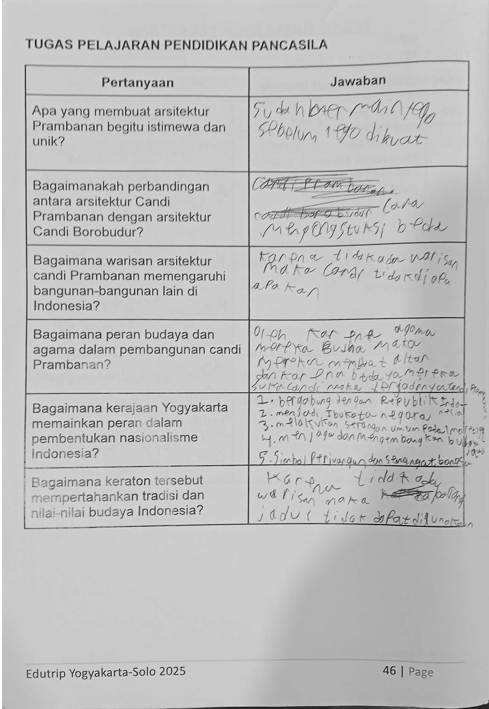 TUGAS PELAJARAN PENDIDIKAN PANCASILA
Pertanyaan
Jawaban
Apa yang membuat arsitektur
Prambanan begitu istimewa dan
unik?
Sudah bermain lego
sebelum lego dibuat
Bagaimanakah perbandingan
antara arsitektur Candi
Prambanan dengan arsitektur
Candi Borobudur?
Candi Prambanan
candi borobudur Cara
mengongstuksi beda
Bagaimana warisan arsitektur
candi Prambanan memengaruhi
bangunan-bangunan lain di
Indonesia?
Karena tidak ada warisan
maka candi tidak di apa
apa kan
Bagaimana peran budaya dan
agama dalam pembangunan candi
Prambanan?
Oleh karena agama
mereka Budha maka
mereka membuat altar
dan karena budaya mereka
suka candi maka
Bagaimana kerajaan Yogyakarta
memainkan peran dalam
pembentukan nasionalisme
Indonesia?
1. bergabung dengan Republik Indo-
nesia
2. menjadi Ibukota negara
3. melakukan serangan umum
4. menjaga dan mengembangkan budaya
5. Simbol Perjuangan dan semangat bangsa
Bagaimana keraton tersebut
mempertahankan tradisi dan
nilai-nilai budaya Indonesia?
Karena tidak ada
warisan maka
jadul tidak dapat digunakan
Edutrip Yogyakarta-Solo 2025
46 | Page